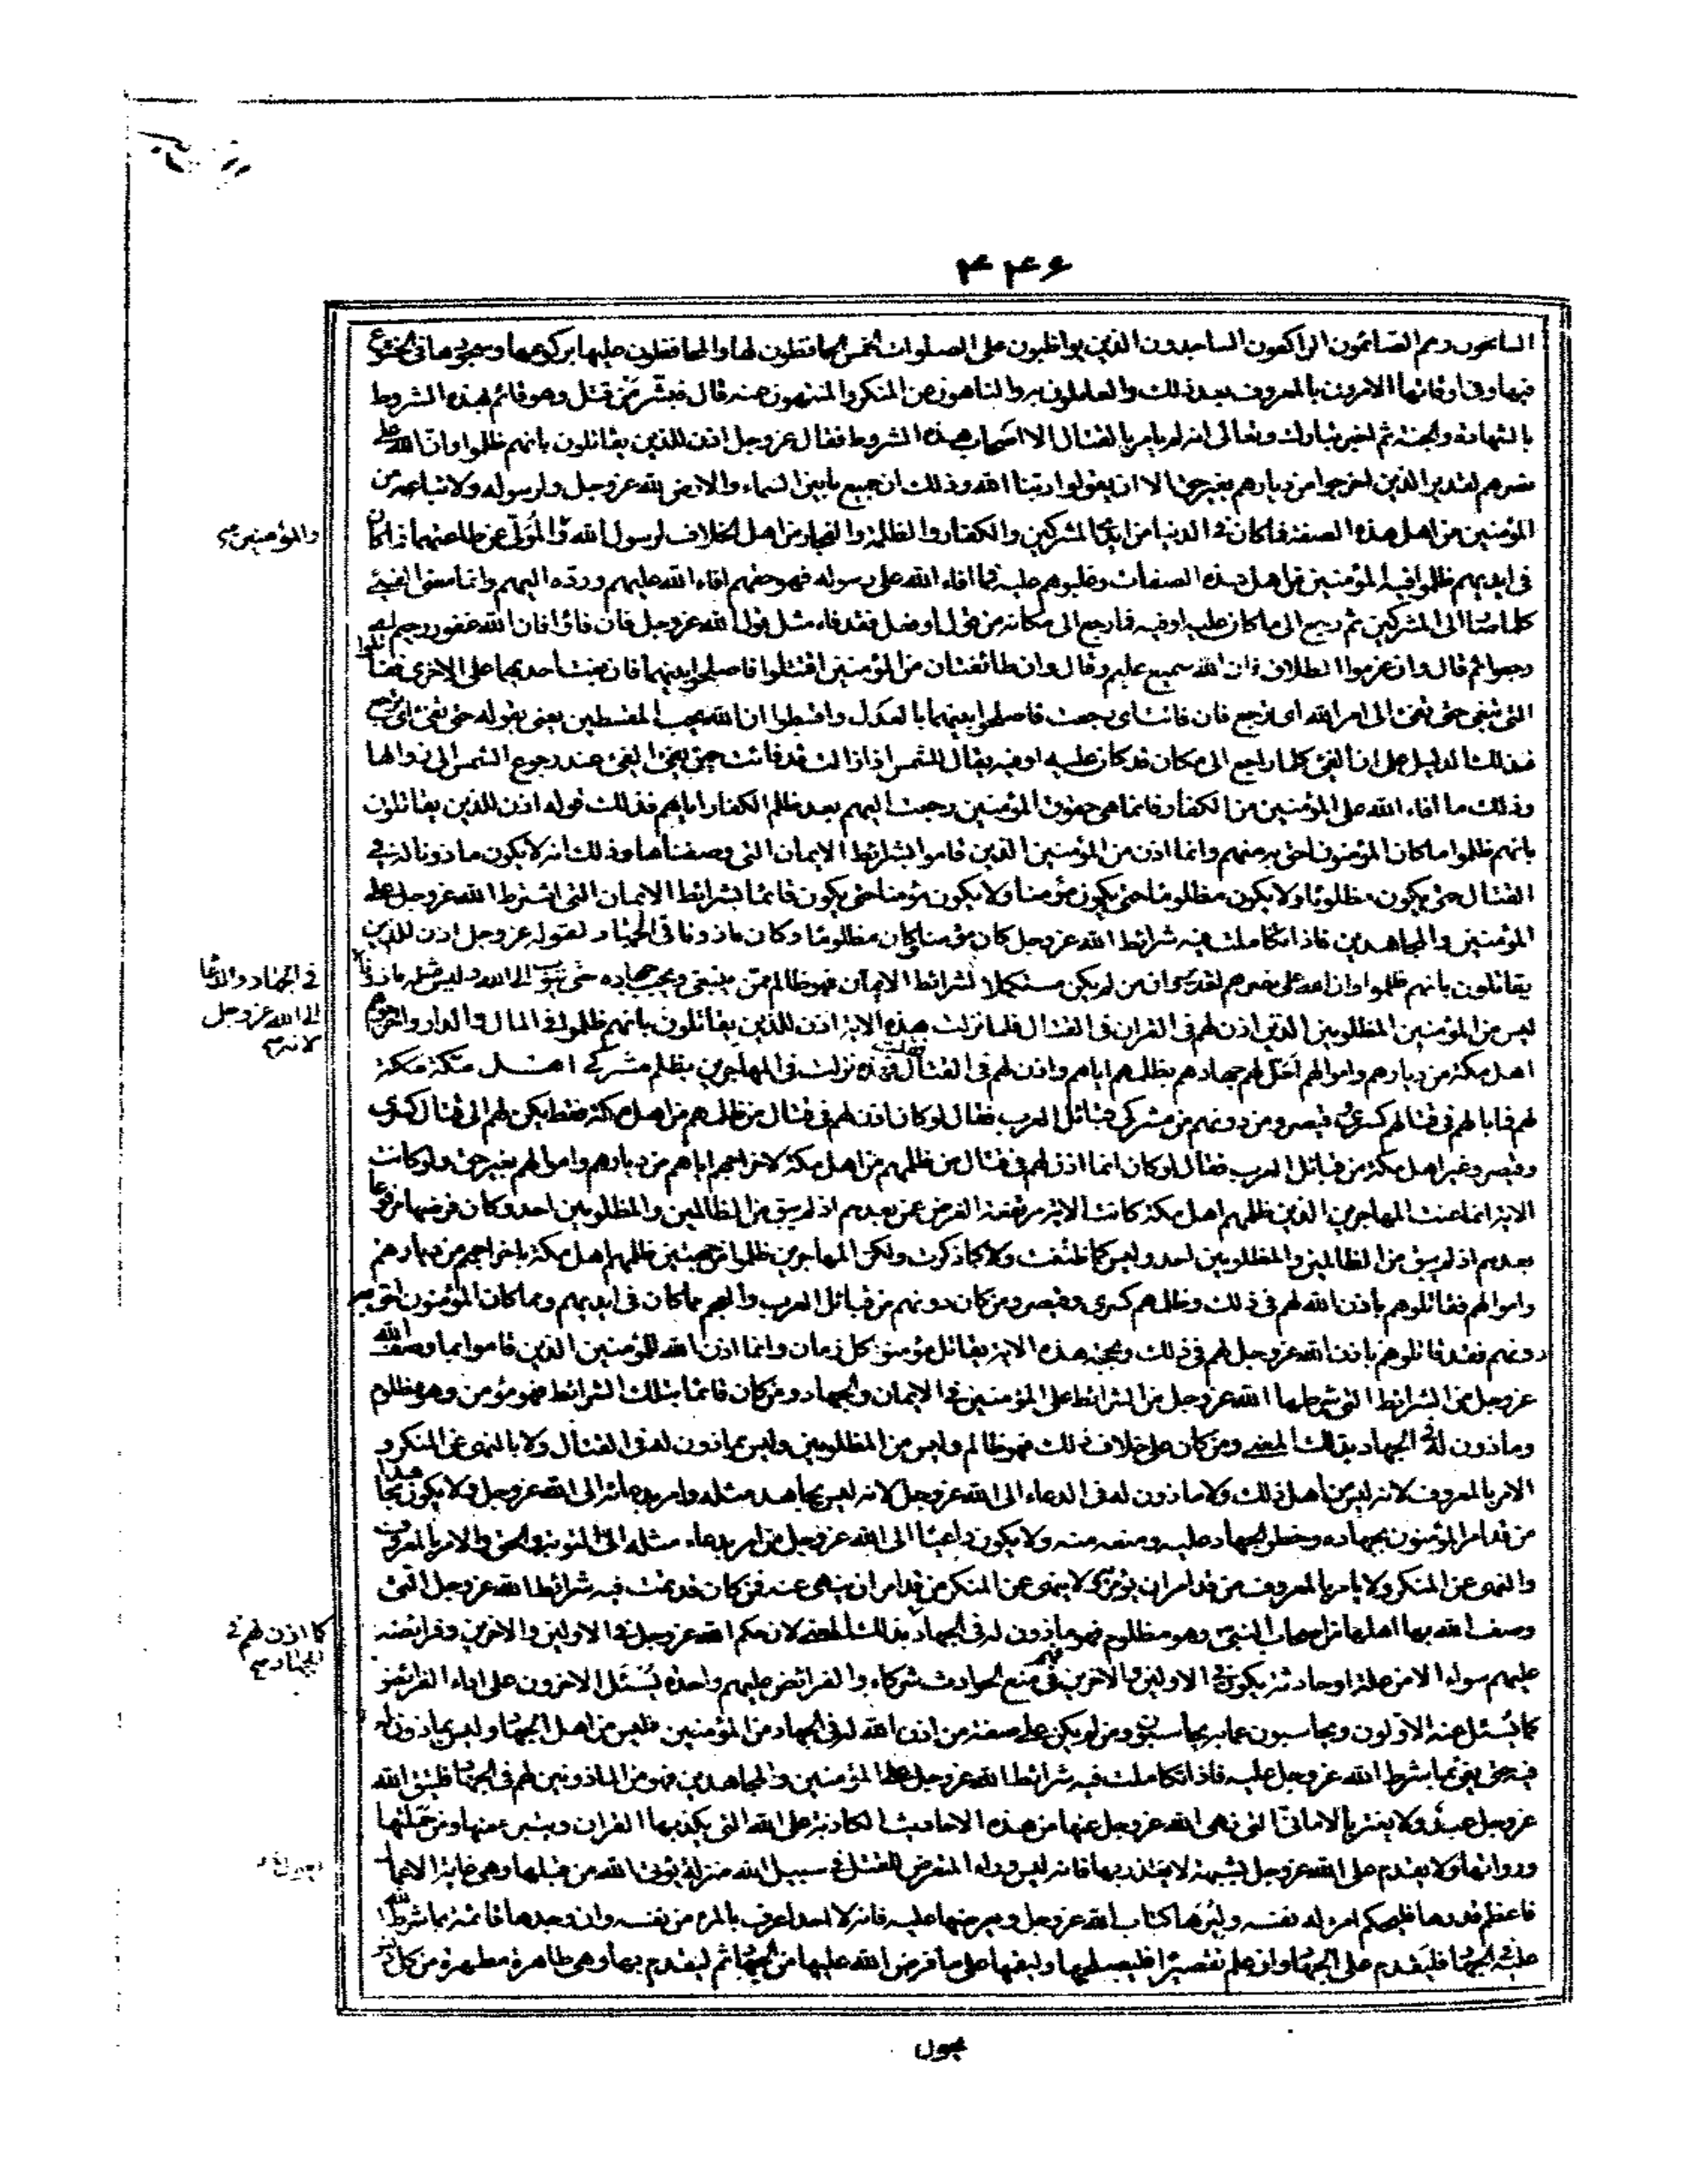 ۴۴۶
السائحون وهم الصائمون الراكعون الساجدون الذين يواظبون على الصلوات الخمس الحافظون لها والمحافظون عليها بركوعها وسجودها فى الخشوع
فيها وفى اوقاتها الامرون بالمعروف بعد ذلك والعاملون به والناهون عن المنكر والمنتهون عنه قال فبشر من قتل وهو قائم بهذه الشروط
بالشهادة والجنة ثم اخبر تبارك وتعالى انه لم يامر بالقتال الا اصحاب هذه الشروط فقال عز وجل اذن للذين يقاتلون بانهم ظلموا وان الله على
نصرهم لقدير الذين اخرجوا من ديارهم بغير حق الا ان يقولوا ربنا الله وذلك ان جميع ما بين السماء والارض لله عز وجل ولرسوله ولاتباعه من
المؤمنين من اهل هذه الصفة فما كان فى الدنيا من ايدى المشركين والكفار والظلمة والفجار من اهل الخلاف لرسول الله والمولى عن طاعتهما مما كان
والمؤمنين
فى ايديهم ظلموا فيه المؤمنين من اهل هذه الصفات وغلبوهم عليه فما افاء الله على رسوله فهو حقهم افاء الله عليهم ورده اليهم وانما معنى الفىء
كلما صار الى المشركين ثم رجع الى ما كان عليه او فيه فما رجع الى مكانه من قول او فعل فقد فاء مثل قول الله عز وجل فان فاؤا فان الله غفور رحيم اى
رجعوا ثم قال وان عزموا الطلاق فان الله سميع عليم وقال وان طائفتان من المؤمنين اقتتلوا فاصلحوا بينهما فان بغت احديهما على الاخرى فقاتلوا
التى تبغى حتى تفىء الى امر الله اى ترجع فان فائت اى رجعت فاصلحوا بينهما بالعدل واقسطوا ان الله يحب المقسطين يعنى بقوله حتى تفىء اى ترجع
فذلك الدليل على ان الفىء كلما راجع الى مكان قد كان عليه او فيه يقال للشمس اذا زالت قد فائت حين يفىء الفىء عند رجوع الشمس الى زوالها
وذلك ما افاء الله على المؤمنين من الكفار فانما هى حقوق المؤمنين رجعت اليهم بعد ظلم الكفار اياهم فذلك قوله اذن للذين يقاتلون
بانهم ظلموا ما كان المؤمنون احق به منهم وانما اذن من المؤمنين الذين قاموا بشرائط الايمان التى وصفناها وذلك انه لا يكون ماذونا له فى
القتال حتى يكون مظلوما ولا يكون مظلوما حتى يكون مؤمنا ولا يكون مؤمنا حتى يكون قائما بشرائط الايمان التى اشترط الله عز وجل على
المؤمنين والمجاهدين فاذا تكاملت فيه شرائط الله عز وجل كان مؤمنا وكان مظلوما وكان ماذونا فى الجهاد لقوله عز وجل اذن للذين
يقاتلون بانهم ظلموا وان الله على نصرهم لقدير وان من لم يكن مستكملا لشرائط الايمان فهو ظالم ممن ينبغى ويجب جهاده حتى يتوب الى الله وليس مثله ماذونا
فى الجهاد والدعاء
الى الله عز وجل
لانه
ليس من المؤمنين المظلومين الذين اذن لهم فى القران فى القتال فلما نزلت هذه الاية اذن للذين يقاتلون بانهم ظلموا فى المال والدار واخرجهم
اهل مكة من ديارهم واموالهم احل لهم جهادهم بظلمهم اياهم واذن لهم فى القتال فقلت فهذه نزلت فى المهاجرين بظلم مشركى اهل مكة
لهم فما بالهم فى قتالهم كسرى وقيصر ومن دونهم من مشركى قبائل العرب فقال لو كان اذن لهم فى قتال من ظلمهم من اهل مكة فقط لم يكن لهم الى قتال كسرى
وقيصر وغير اهل مكة من قبائل العرب فقال لو كان انما اذن لهم فى قتال من ظلمهم من اهل مكة لاخراجهم اياهم من ديارهم واموالهم بغير حق ولو كانت
الاية انما عنت المهاجرين الذين ظلمهم اهل مكة كانت الاية مرتفعة الفرض عمن بعدهم اذ لم يبق من الظالمين والمظلومين احد وكان فرضها مرفوعا
بعدهم اذ لم يبق من الظالمين والمظلومين احد وليس كما ظننت ولا كما ذكرت ولكن المهاجرين ظلموا من جهتين ظلمهم اهل مكة باخراجهم من ديارهم
واموالهم فقاتلوهم باذن الله لهم فى ذلك وظلمهم كسرى وقيصر ومن كان دونهم من قبائل العرب والعجم بما كان فى ايديهم مما كان المؤمنون احق به
دونهم فقد قاتلوهم باذن الله عز وجل لهم فى ذلك وبحجة هذه الاية يقاتل مؤمنوا كل زمان وانما اذن الله للمؤمنين الذين قاموا بما وصف الله
عز وجل من الشرائط التى شرطها الله عز وجل من الشرائط على المؤمنين فى الايمان والجهاد ومن كان قائما بتلك الشرائط فهو مؤمن وهو مظلوم
وماذون له فى الجهاد بذلك المعنى ومن كان على خلاف ذلك فهو ظالم وليس من المظلومين وليس بماذون له فى القتال ولا بالنهى عن المنكر و
الامر بالمعروف لانه ليس من اهل ذلك ولا ماذون له فى الدعاء الى الله عز وجل لانه ليس يجاهد مثله وامر بدعائه الى الله عز وجل ولا يكون مجاهدا
من قد امر المؤمنون بجهاده وحظر الجهاد عليه ومنعه منه ولا يكون داعيا الى الله عز وجل من امر بدعاء مثله الى التوبة والحق والامر بالمعروف
والنهى عن المنكر ولا يامر بالمعروف من قد امر ان يؤمر به ولا ينهى عن المنكر من قد امر ان ينهى عنه فمن كان قد تمت فيه شرائط الله عز وجل التى
وصف الله بها اهلها من اصحاب النبى وهو مظلوم فهو ماذون له فى الجهاد بذلك المعنى لان حكم الله عز وجل فى الاولين والاخرين وفرائضه
كما اذن لهم فى
الجهاد
عليهم سواء الا من علة او حادث يكون فى الاولين والاخرين فى منع الحوادث شركاء والفرائض عليهم واحدة يسئل الاخرون على اداء الفرائض
كما يسئل عنه الاولون ويحاسبون عما به يحاسبون ومن لم يكن على صفة من اذن الله له فى الجهاد من المؤمنين فليس من اهل الجهاد وليس بماذون له
فيه حتى يفىء بما شرط الله عز وجل عليه فاذا تكاملت فيه شرائط الله عز وجل على المؤمنين والمجاهدين فهو من الماذونين لهم فى الجهاد فليتق الله
عز وجل عبد ولا يغتر بالامانى التى نهى الله عز وجل عنها من هذه الاحاديث الكاذبة على الله التى يكذبها القران ويتبرء منها ومن حملتها
ورواتها ولا يقدم على الله عز وجل بشبهة لا يعذر بها فانه ليس وراء المتعرض للقتل فى سبيل الله منزلة يؤتى الله من قبلها وهى غاية الاعمال
فاعظم قدرها فليحكم امرء لنفسه وليرها كتاب الله عز وجل ويعرضها عليه فانه لا احد اعرف بالمرء من نفسه وان وجدها قائمة بما شرط الله
عليه فى الجهاد فليقدم على الجهاد وان علم تقصيرا فليصلحها وليقمها على ما فرض الله عليها من الجهاد ثم ليقدم بها وهى طاهرة مطهرة من كل دنس
يحول